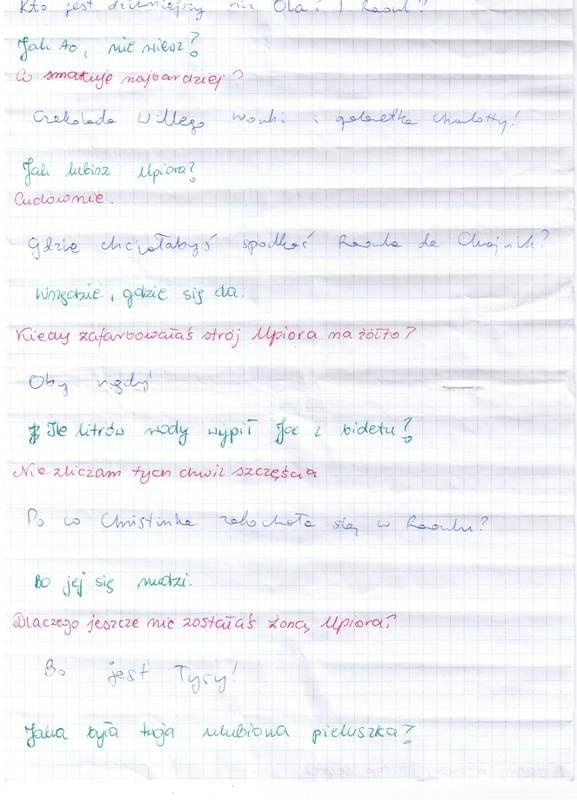 Kto jest dziwniejszy niż Ola i Raoul?
Jak to, nie wiesz?
Co smakuje najbardziej?
Czekolada Willego Wonki i galaretka Charlotty!
Jak lubisz Upiora?
Cudownie.
Gdzie chciałabyś spotkać Raoula de Chagny?
Wszędzie, gdzie się da.
Kiedy zafarbowałaś strój Upiora na żółto?
Oby nigdy!
Ile litrów wody wypił Joe z bidetu?
Nie zliczam tych chwil szczęścia
Po co Christinka zakochała się w Raoulu?
Bo jej się nudzi.
Dlaczego jeszcze nie zostałaś żoną Upiora?
Bo jest Łysy!
Jaka była twoja ulubiona pieluszka?